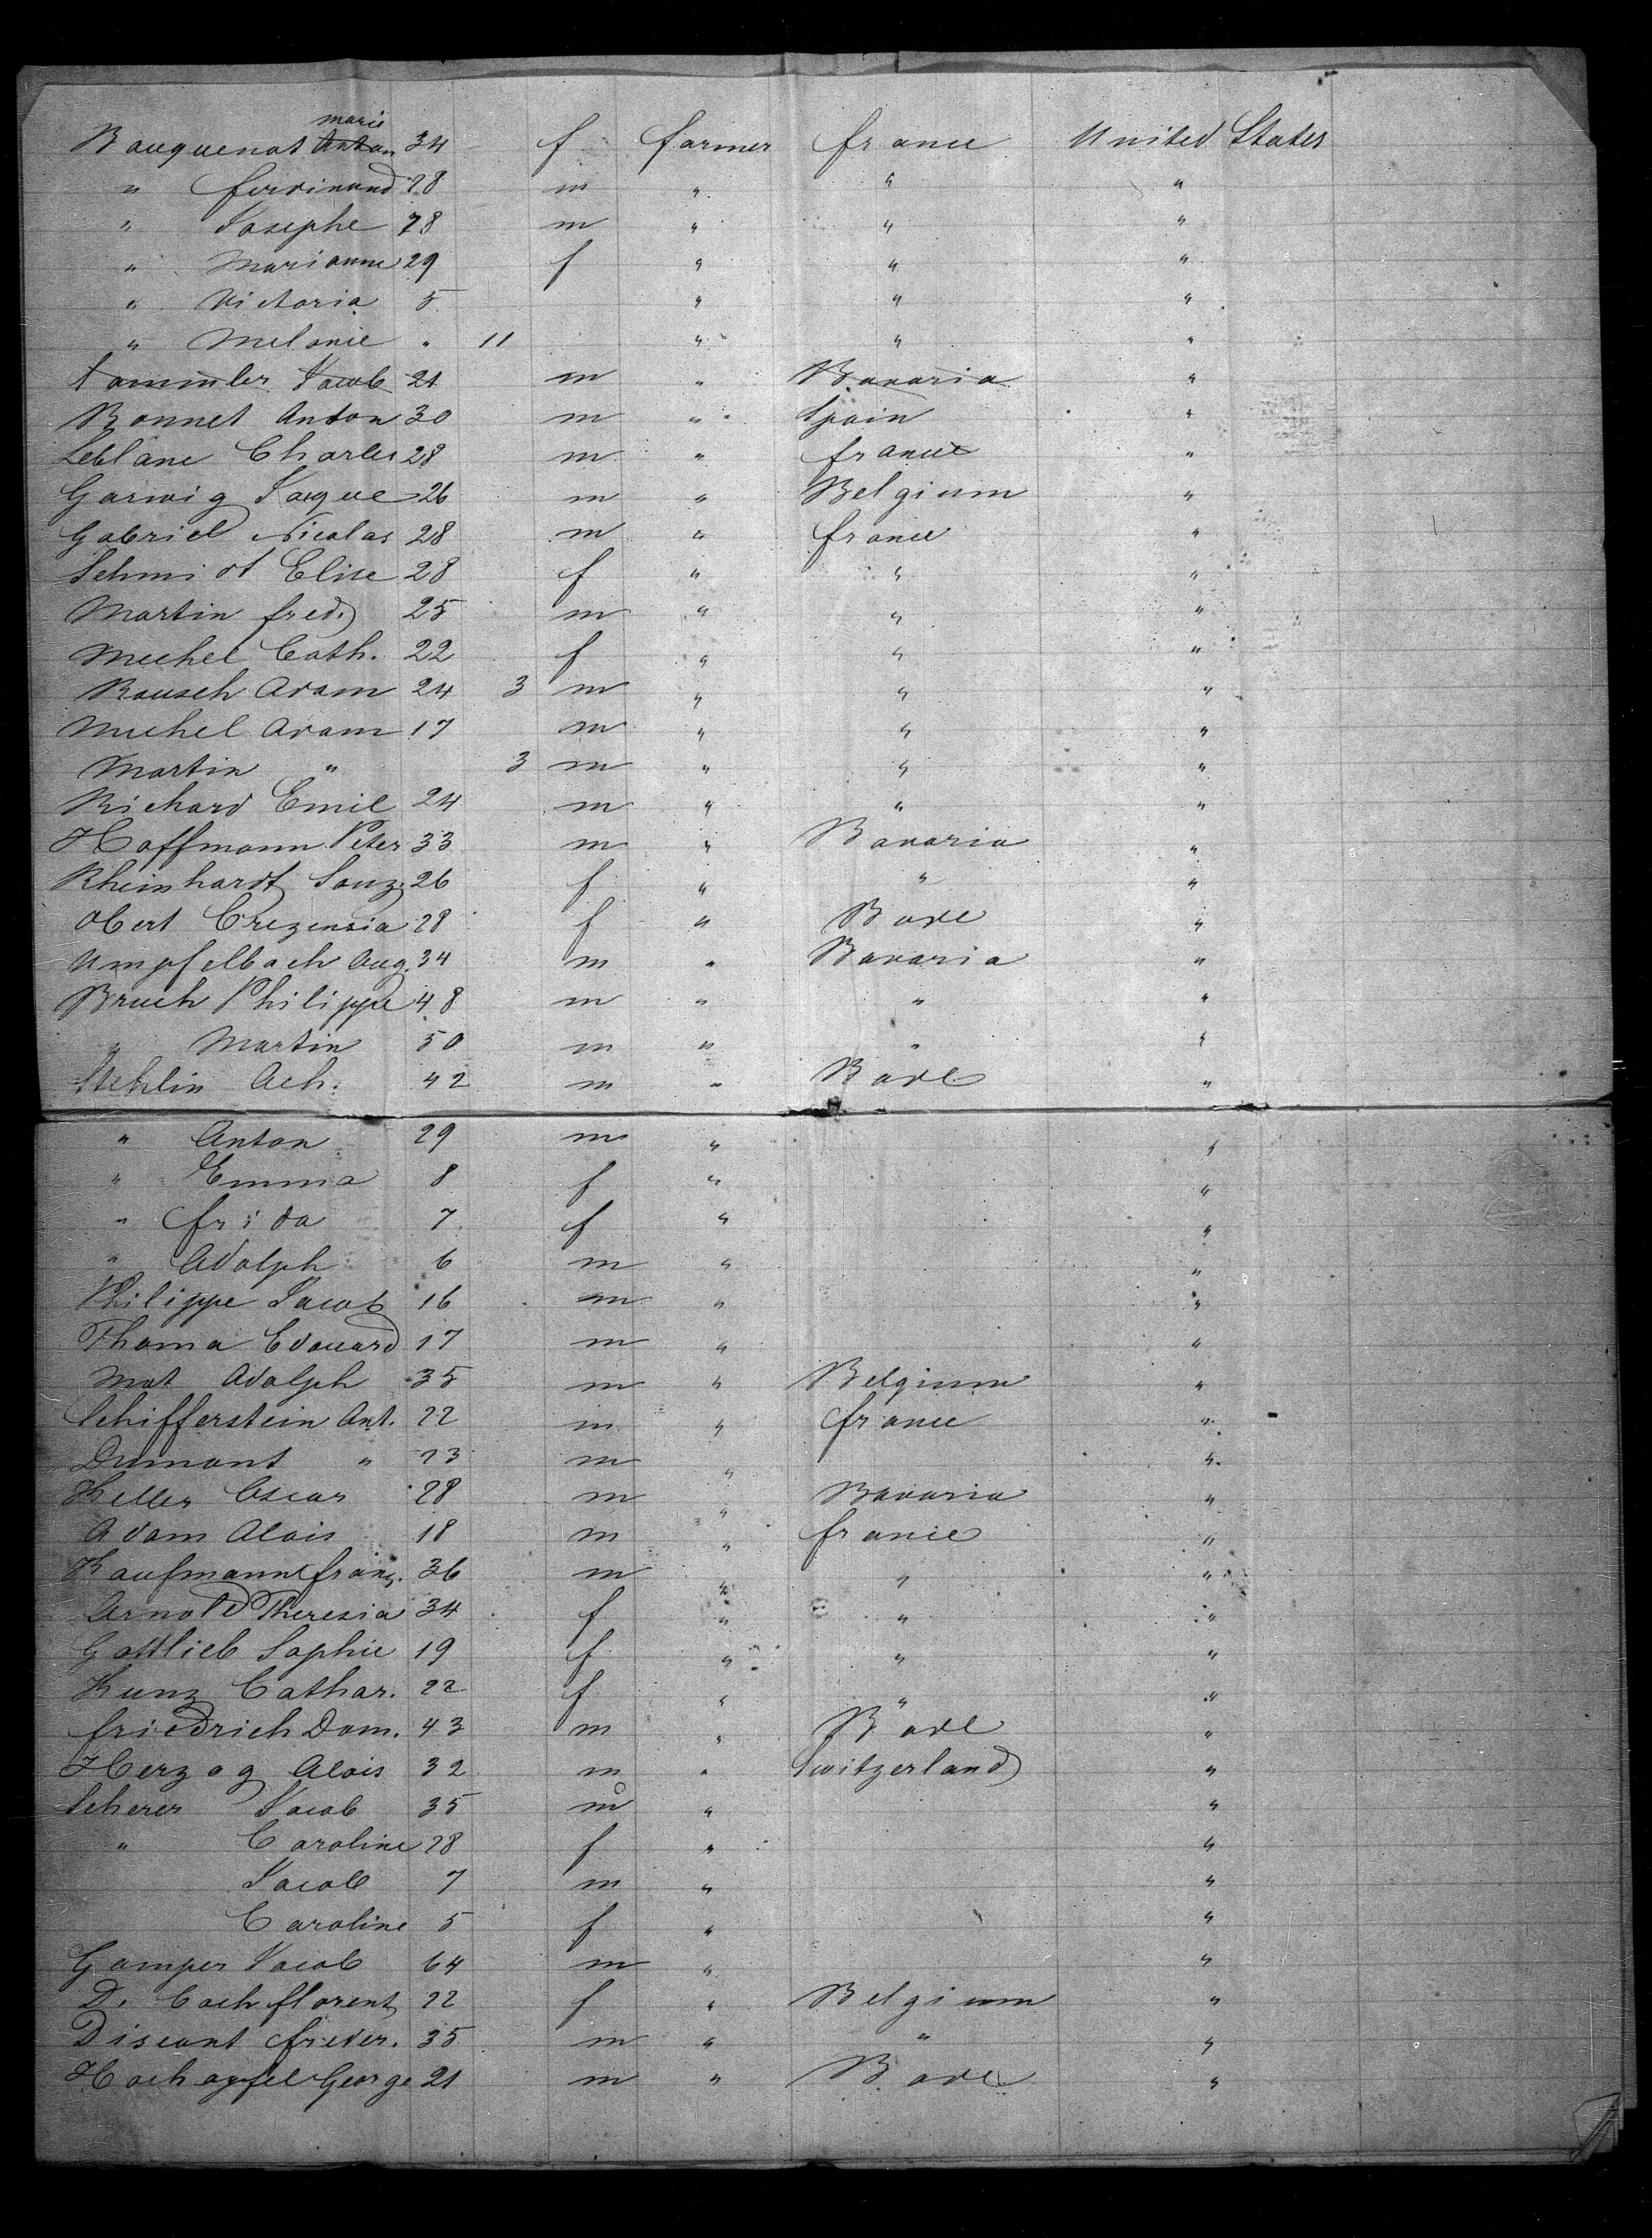 marie
Bauquenot Anton 34 f farmer france United States
" ferdinand 28 m " " "
" Josephe 78 m " " "
" Marianne 29 f " " "
" Victoria 5 " " "
" Melanie " 11 " " "
Jacob 21 m " Bavaria "
Bonnet Anton 30 m " Spain "
Leblanc Charles 28 m " france "
Garwig Jaque 26 m " Belgium "
Gabriel Nicolas 28 m " france "
Schmidt Elise 28 f " " "
Martin fred. 25 m " " "
Michel Cath. 22 f " " "
Rausch Adam 24 3 m " " "
Michel Adam 17 m " " "
Martin " 3 m " " "
Richard Emil 24 m " " "
Hoffmann Peter 33 m " Bavaria "
Rheinhardt 26 f " " "
Obert Crezensia 28 f " Bade "
Umpfelbach Aug. 34 m " Bavaria "
Bruch Philippe 48 m " " "
" Martin 50 m " " "
Stehlin Ach. 42 m " Bade "
" Anton 29 m " "
" Emma 8 f " "
" frida 7 f " "
" Adolph 6 m " "
Philippe Jacob 16 m " "
Thoma Edouard 17 m " "
Mat Adolph 35 m " Belgium "
Schifferstein Ant. 22 m " france "
Dumont " 23 m " "
Keller Oscar 28 m " Bavaria "
Adam Alois 18 m " france "
Kaufmann franz. 36 m " " "
Arnold Theresia 34 f " " "
Gottlieb Sophie 19 f " " "
Kunz Cathar. 22 f " " "
friedrich Dom. 43 m " Bade "
Herzog Alois 32 m " Switzerland "
Scherer Jacob 35 m " "
" Caroline 28 f " "
Jacob 7 m " "
Caroline 5 f " "
Gamper Jacob 64 m " "
D. Coch florent. 22 f " Belgium "
Discant freder. 35 m " " "
Hochapfel George 21 m " Bade "